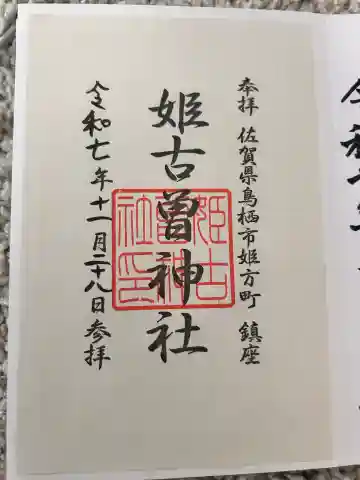 奉拝 佐賀県鳥栖市姫方町 鎮座
姫古曽神社
姫古曽神社印
令和七年十一月二十八日参拝